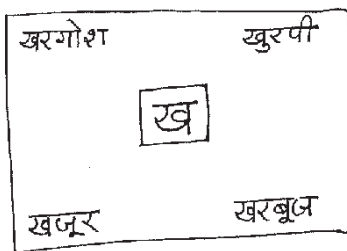 खरगोश खुरपी
ख
खजूर खरबूज